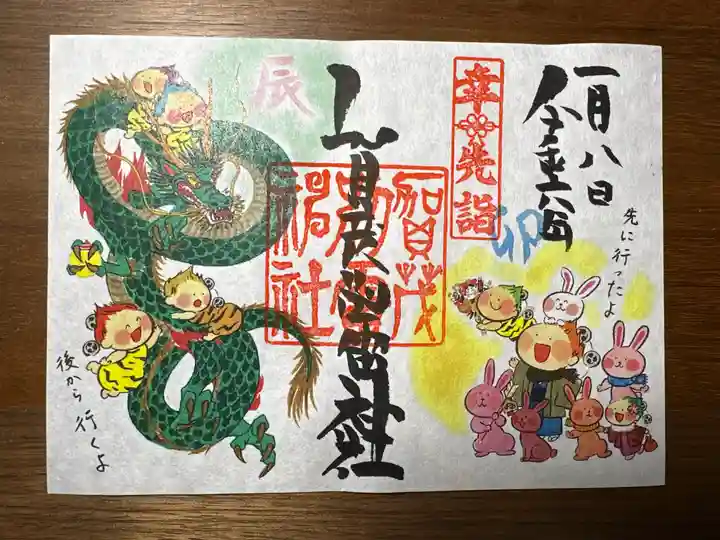 一月八日
令和六年
幸先詣
先に行ったよ
卯
賀茂別雷神社
賀茂
別雷
神社
辰
後から行くよ